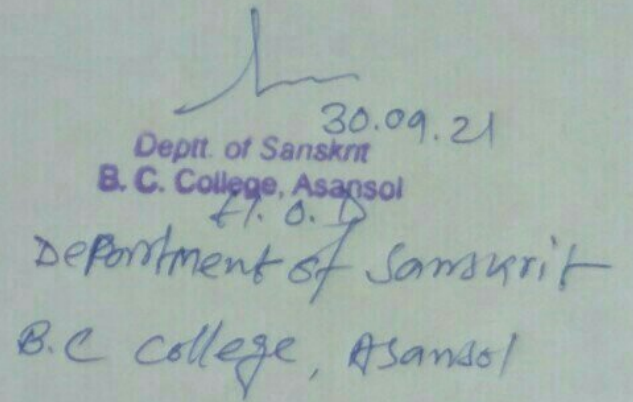 30.09.21
Deptt. of Sanskrit
B. C. College, Asansol
H. O. D
Department of Sanskrit
B.C College, Asansol